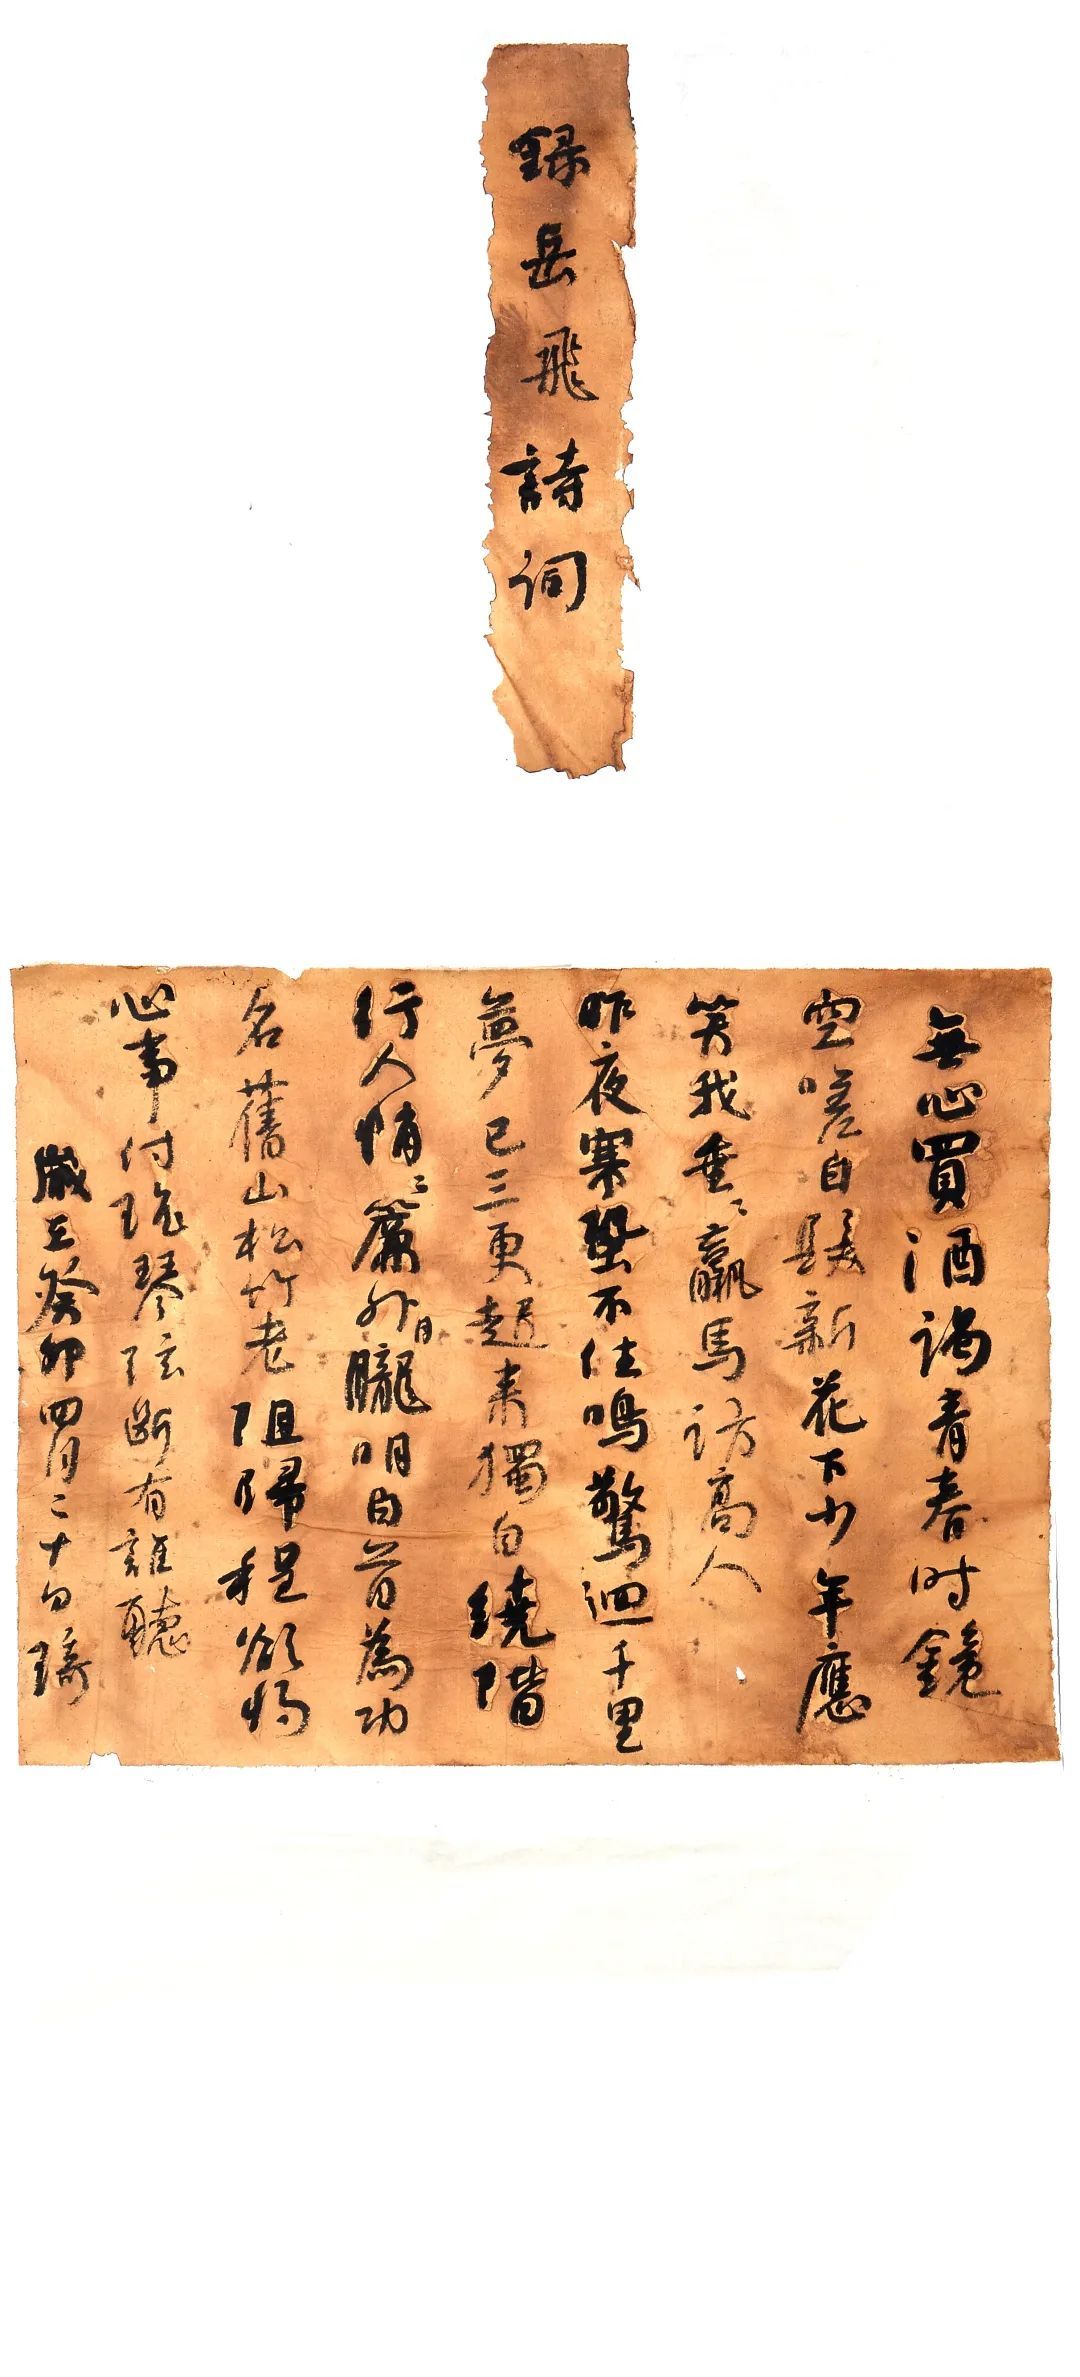 錄岳飛詩词
無心買酒謁青春时鏡
空嗟白髮新花下少年應
笑我垂〻羸馬訪高人
昨夜寒蛩不住鳴驚迴千里
夢已三更起来獨自繞階
行人悄〻簾外月朧明白首為功
名舊山松竹老阻歸程欲将
心事付瑶琴弦斷有誰聽
歲在癸卯四月二十日琦